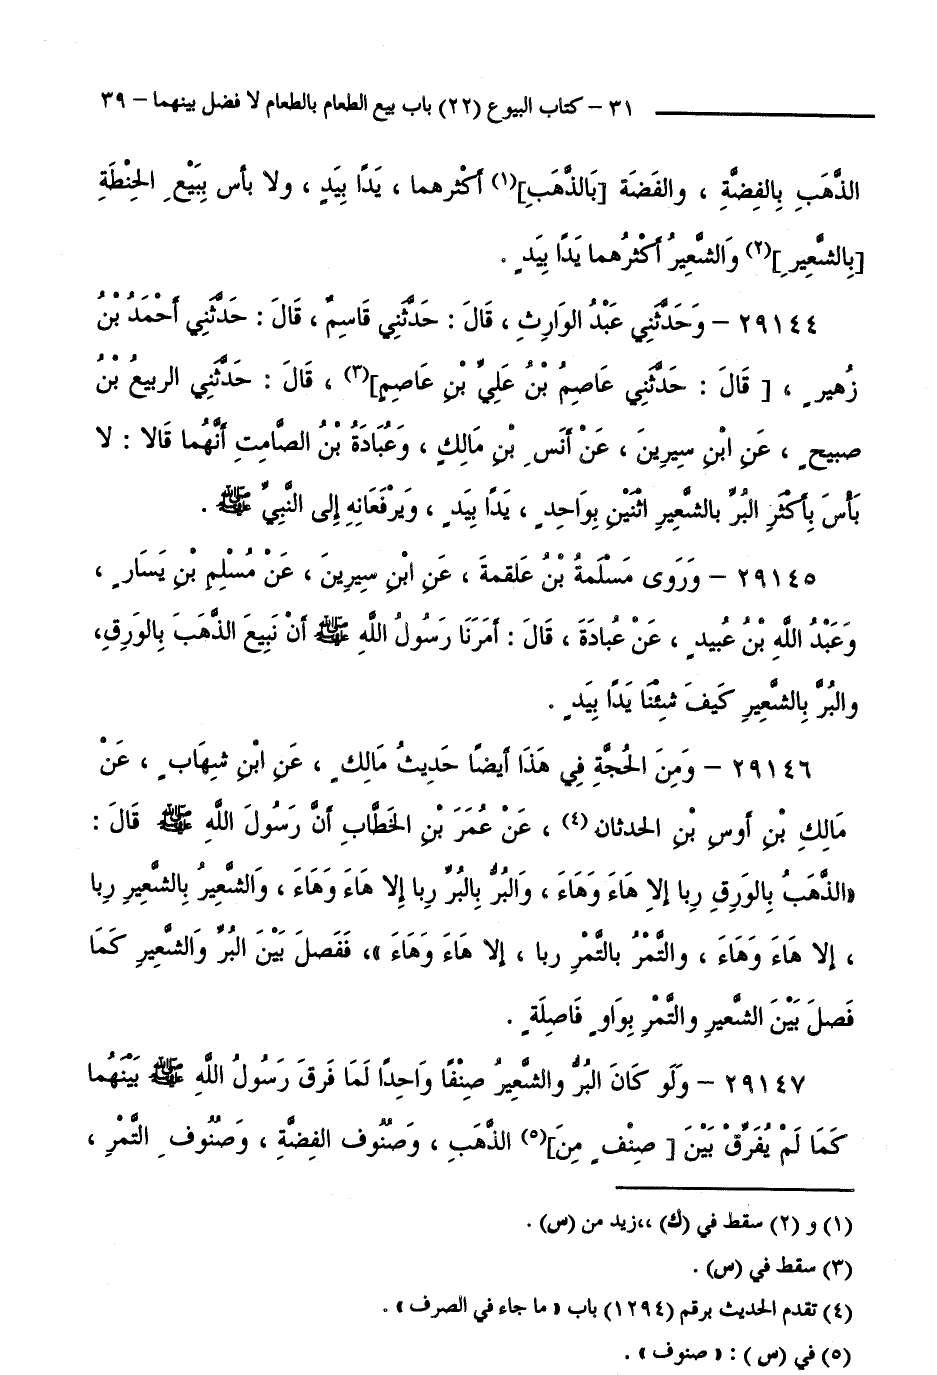 ٣١ – كتاب البيوع (٢٢) باب بيع الطعام بالطعام لا فضل بينهما – ٣٩
الذَّهَبِ بِالفِضَّةِ ، والفَضَة [بَالذَّهَبِ](١) أَكْثرهما ، يَدًا بِيَدٍ ، ولا بأس بِبَيْعِ الحِنْطَةِ
[بِالشَّعِيرِ](٢) وَالشَّعِيرُ أَكْثَرُهما يَدًا بِيَدٍ .
٢٩١٤٤ – وَحَدَّثَنِي عَبْدُ الوَارِثِ ، قَالَ : حَدَّثَنِي قَاسِمٌ ، قَالَ : حَدَّثَنِي أَحْمَدُ بْنُ
زُهيرٍ ، [ قَالَ : حَدَّثَنِي عَاصِمُ بْنُ عَلِيِّ بْنِ عَاصِمٍ](٣) ، قَالَ : حَدَّثَنِي الربيعُ بْنُ
صبيحٍ ، عَنِ ابْنِ سِيرِينَ ، عَنْ أَنَسِ بْنِ مَالِكٍ ، وَعُبَادَةُ بْنُ الصَّامِتِ أَنَّهُما قَالا : لا
بَأْسَ بِأَكْثَرِ البُرِّ بالشَّعِيرِ اثْنَيْنِ بِوَاحِدٍ ، يَدًا بِيَدٍ ، وَيَرْفَعَانِهِ إِلى النَّبِيِّ ﷺ .
٢٩١٤٥ – وَرَوى مَسْلَمةُ بْنُ عَلقمةَ ، عَنِ ابْنِ سِيرِينَ ، عَنْ مُسْلِمِ بْنِ يَسَارٍ ،
وَعَبْدُ اللَّهِ بْنُ عُبيدٍ ، عَنْ عُبادَةَ ، قَالَ : أَمَرَنَا رَسُولُ اللَّهِ ﷺ أَنْ نَبِيعَ الذَّهَبَ بِالوَرِقِ،
والبُرَّ بِالشَّعِيرِ كَيفَ شِئْنَا يَدًا بِيَدٍ .
٢٩١٤٦ – وَمِنَ الحُجَّةِ فِي هَذَا أَيضًا حَدِيثُ مَالِكٍ ، عَنِ ابْنِ شِهَابٍ ، عَنْ
مَالِكِ بْنِ أَوسِ بْنِ الحدثان(٤) ، عَنْ عُمَرَ بْنِ الخَطَّابِ أَنَّ رَسُولَ اللَّهِ ﷺ قَالَ :
«الذَّهَبُ بِالوَرِقِ رِبا إلاِ هَاءَ وَهَاءَ ، وَالبُرُّ بِالبُرِّ رِبا إِلا هَاءَ وَهَاءَ ، وَالشَّعِيرُ بِالشَّعِيرِ رِبا
، إلا هَاءَ وَهَاءَ ، والتَّمْرُ بالتَّمْرِ ربا ، إلا هَاءَ وَهَاءَ »، فَفَصلَ بَيْنَ البُرِّ وَالشَّعِيرِ كَمَا
فَصلَ بَيْنَ الشَّعيرِ والتَّمْرِ بِوَاوٍ فَاصِلَةٍ .
٢٩١٤٧ – وَلَو كَانَ البُرُّ والشَّعِيرُ صِنْفًا وَاحِدًا لَمَا فَرقَ رَسُولُ اللَّهِ ﷺ بَيْنَهُما
كَمَا لَمْ يُفَرِّقْ بَيْنَ [ صِنْفٍ مِنَ](٥) الذَّهَبِ ، وَصُنُوف الفِضَّةِ ، وَصُنُوفِ التَّمْرِ ،
(١) و (٢) سقط في (ك) ،،زيد من (س) .
(٣) سقط في (س) .
(٤) تقدم الحديث برقم (١٢٩٤) باب « ما جاء في الصرف » .
(٥) في (س ) : « صنوف » .